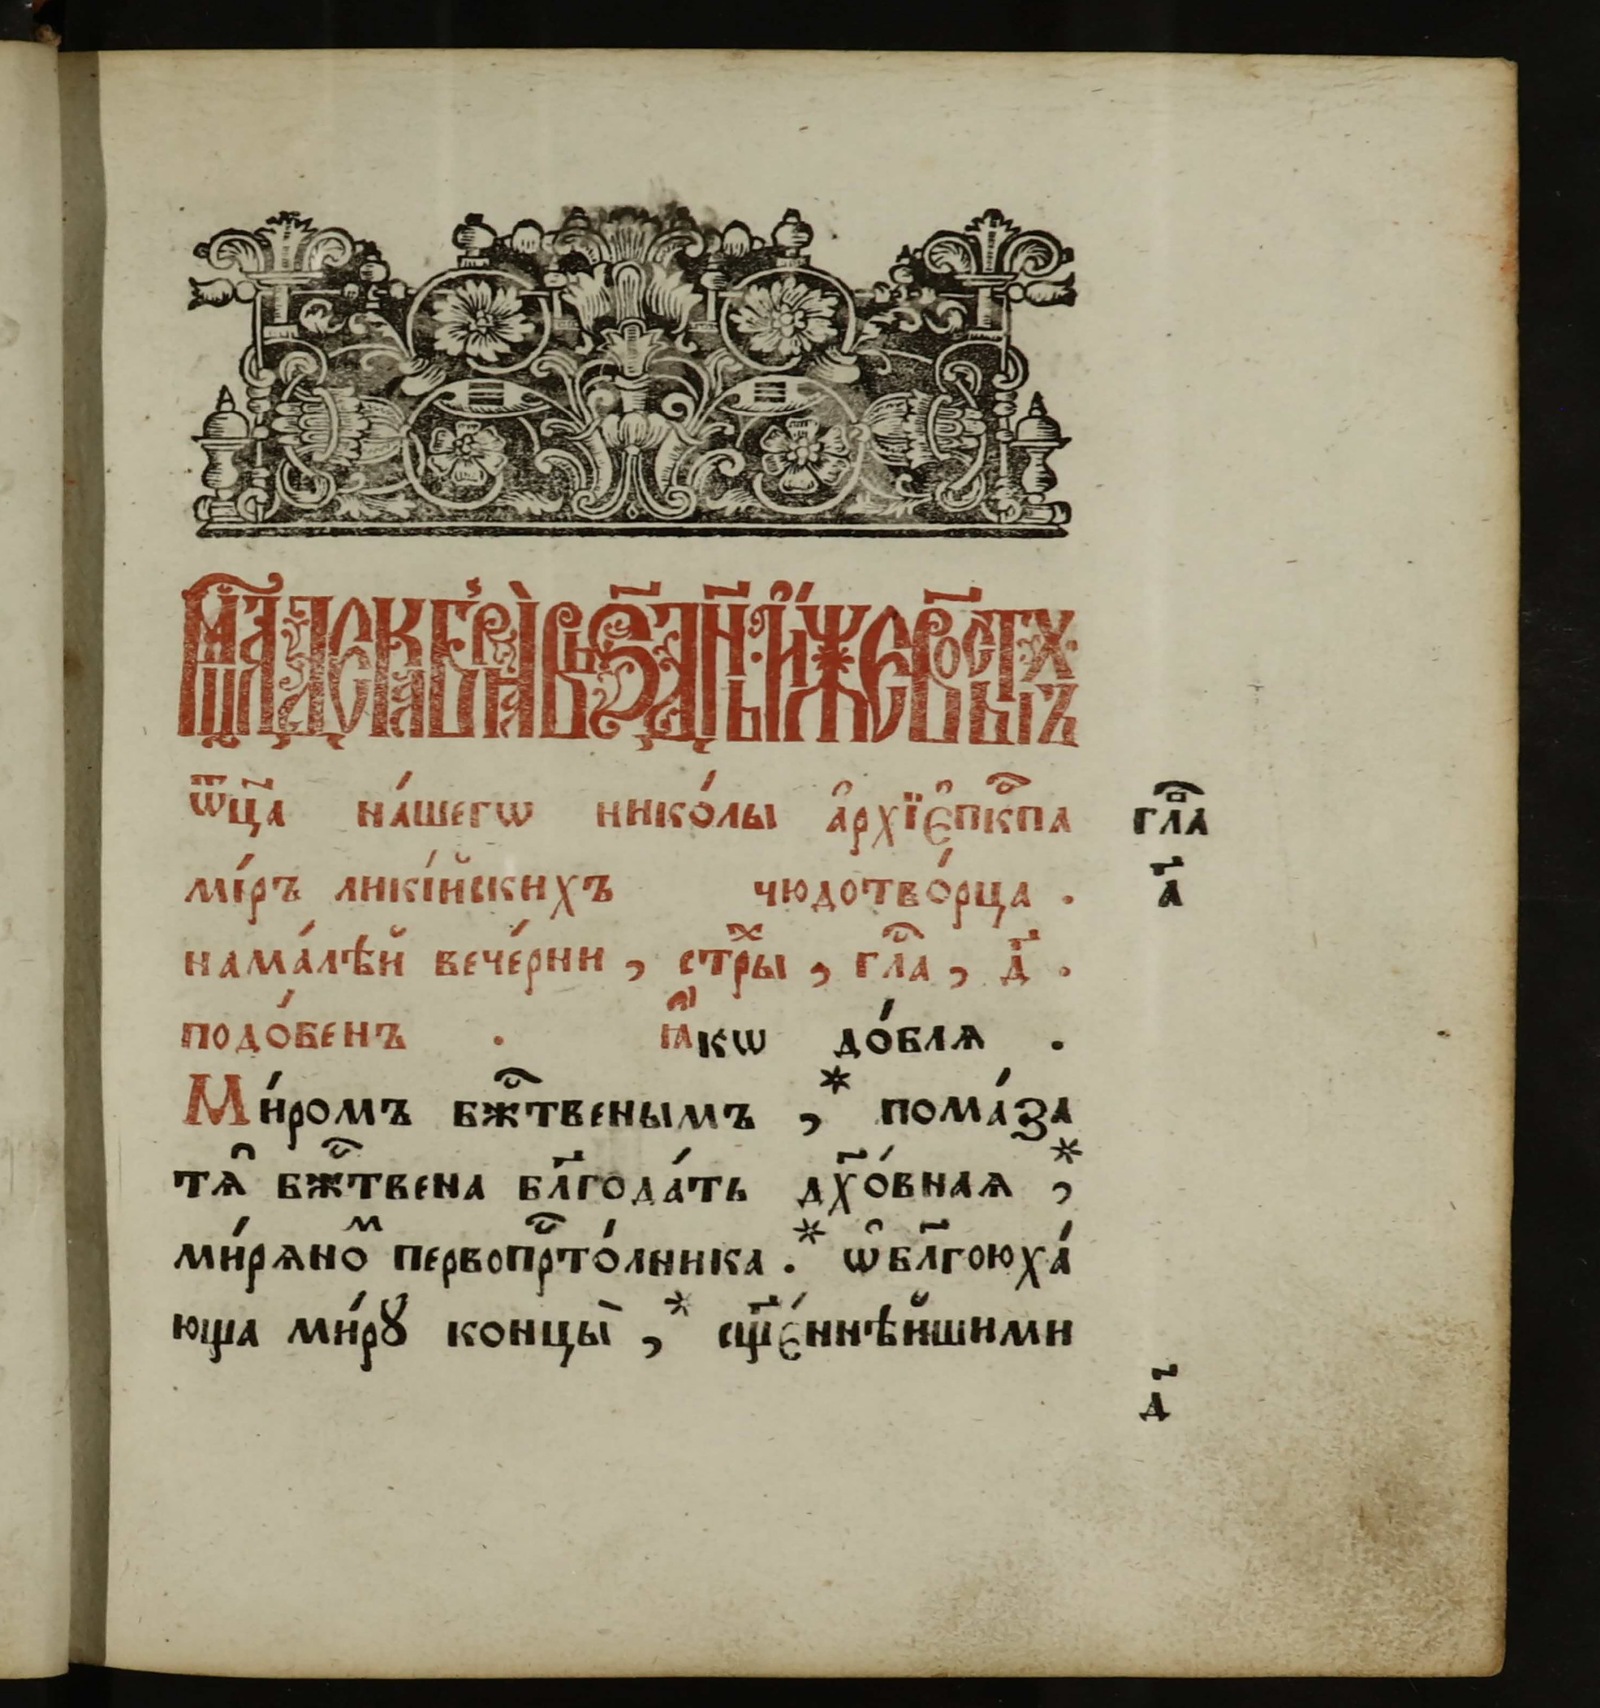 Мц҃а декаврі́а въ ѕ҃ дн҃ь· и҆́же во ст҃ы́хъ·
ѿц҃а на́шегѡ нико́лы а҆рхїе҆пкⷭ҇па
мі́ръ ликі́йскихъ чюдотво́рца .
нама́лѣй вече́рни , стрⷯы , глⷭ҇а , д҃ .
подо́бенъ . ꙗ҆́кѡ до́блѧ .
Ми́ромъ бжⷭ҇твенымъ ,* пома́за
тѧ̑ бжⷭ҇твена бл҃года́ть дх҃о́внаѧ ,*
ми́рѧноⷨ первопрⷭ҇то́лника .* ѡ҆бл҃гоюха́
юща ми́рꙋ концы̀ ,* сщ҃е́ннѣйшими
глⷭ҇а
а҃
д҃